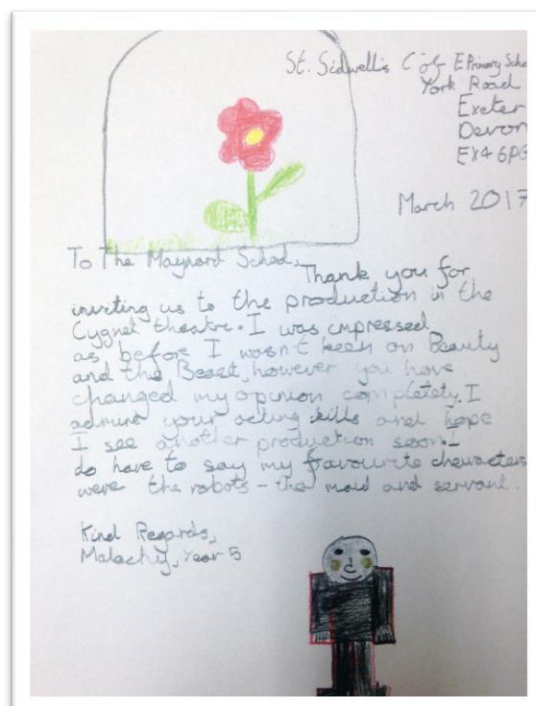 St. Sidwell's C of E Primary Scho
York Road
Exeter
Devon
EX4 6PG
March 2017
To The Maynard School,
Thank you for
inviting us to the production in the
Cygnet theatre. I was impressed
as before I wasn't keen on Beauty
and the Beast, however you have
changed my opinion completely. I
admire your acting skills and hope
I see another production soon. I
do have to say my favourite characters
were the robots - the maid and servant.
Kind Regards,
Malachy, Year 5